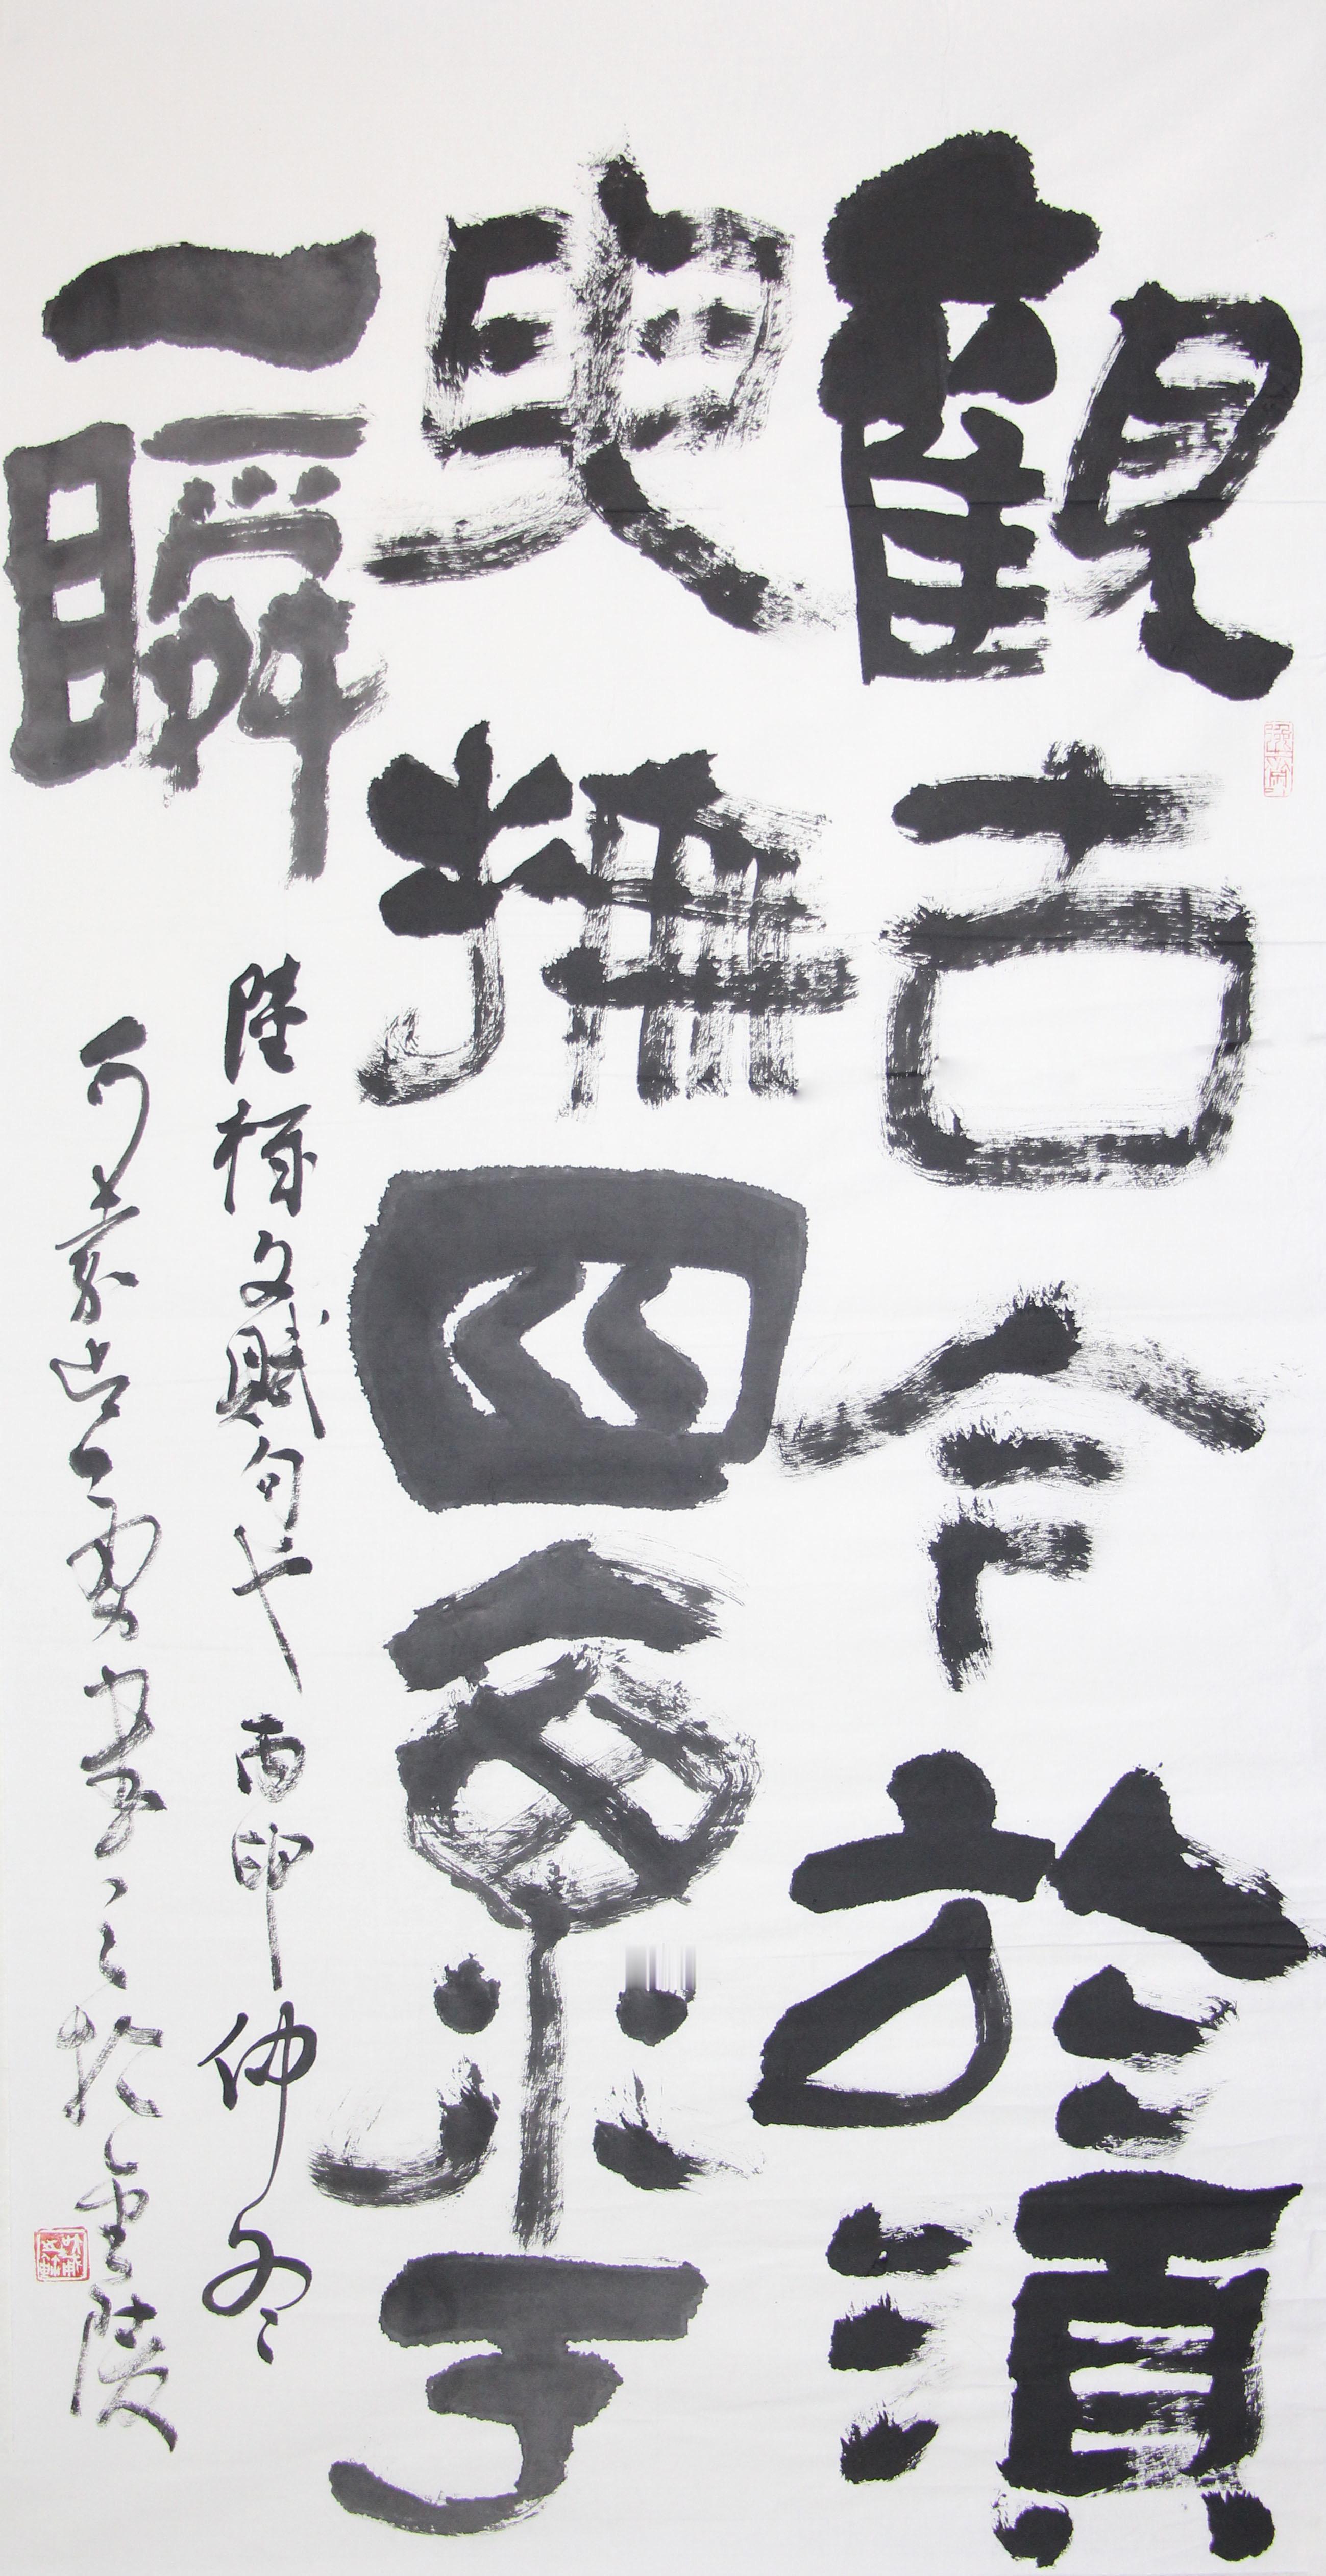 觀古今於須
臾撫四海于
一瞬
陸機文賦句也 丙申仲冬
書之於金陵